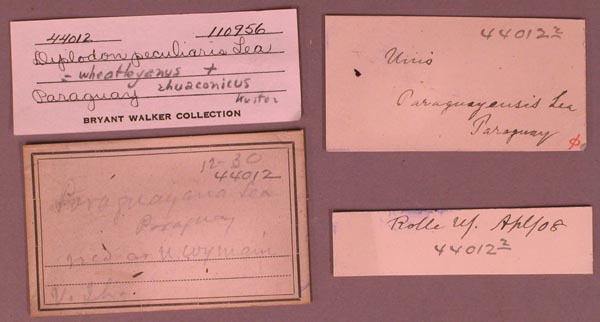 44012 110956
Diplodon peculiaris Lea
= wheatleyanus +
Paraguay rhuaconicus
BRYANT WALKER COLLECTION
44012 2
Unio
Paraguayensis Lea
Paraguay
12-30
44012
Paraguayana Lea
Paraguay
Rolle Apl/08
44012 2